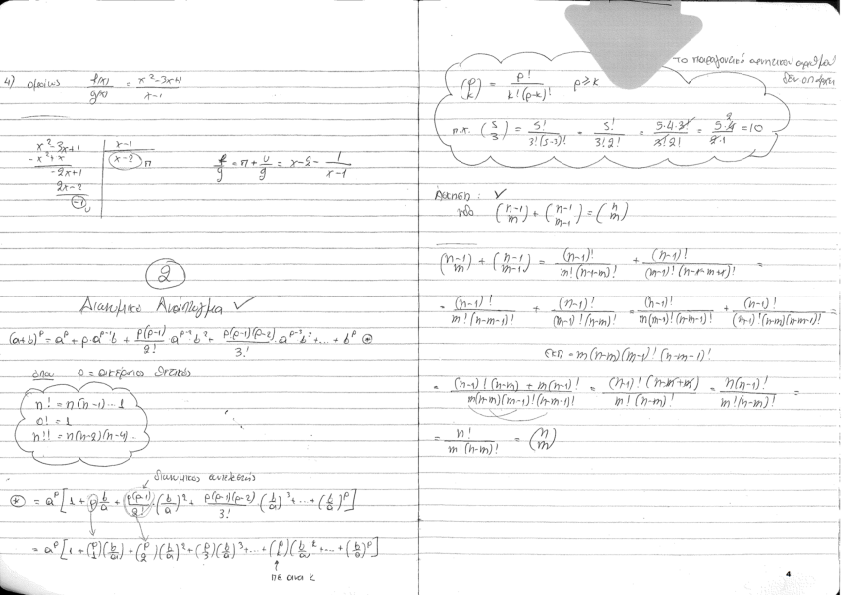 4) ομοίως f(x)/g(x) = (x²-3x+1)/(x-1)
x²-3x+1 | x-1
-x²+x | x-2 π
-2x+1
2x-2
-1 υ
f/g = π + υ/g = x-2- 1/(x-1)
2
Διωνυμικό Ανάπτυγμα ✓
(a+b)^p = a^p + p·a^(p-1)b + p(p-1)/2! a^(p-2)b² + p(p-1)(p-2)/3! ·a^(p-3)b³+...+ b^p ⊛
όπου ακέραιος θετικός
n! = n(n-1)...1
0! = 1
n!! = n(n-2)(n-4)...
διωνυμικός συντελεστής
⊛ = a^p [1 + p b/a + p(p-1)/2! (b/a)² + p(p-1)(p-2)/3! (b/a)³+...+(b/a)^p]
= a^p [1 + (p 1)(b/a) + (p 2)(b/a)² + (p 3)(b/a)³+...+ (b/a)^p]
πε ανα k
το παραγοντικό αρνητικού αριθμού
δεν υπάρχει
(p k) = p!/(k!(p-k)!) p≥k
π.χ. (5 3) = 5!/(3!(5-3)!) = 5!/(3!2!) = 5·4·3!/(3!2!) = 5·4/(2·1) = 10
Άσκηση: ✓
νδο (n-1 m) + (n-1 m-1) = (n m)
(n-1 m) + (n-1 m-1) = (n-1)!/(m!(n-1-m)!) + (n-1)!/((m-1)!(n-1-m+1)!) =
= (n-1)!/(m!(n-m-1)!) + (n-1)!/((m-1)!(n-m)!) = (n-1)!/(m(m-1)!(n-m-1)!) + (n-1)!/((m-1)!(n-m)(n-m-1)!) =
ΕΚΠ = m(n-m)(m-1)!(n-m-1)!
= ((n-1)!(n-m) + m(n-1)!)/(m(n-m)(m-1)!(n-m-1)!) = (n-1)!(n-m+m)/(m!(n-m)!) = n(n-1)!/(m!(n-m)!) =
= n!/(m(n-m)!) = (n m)
4